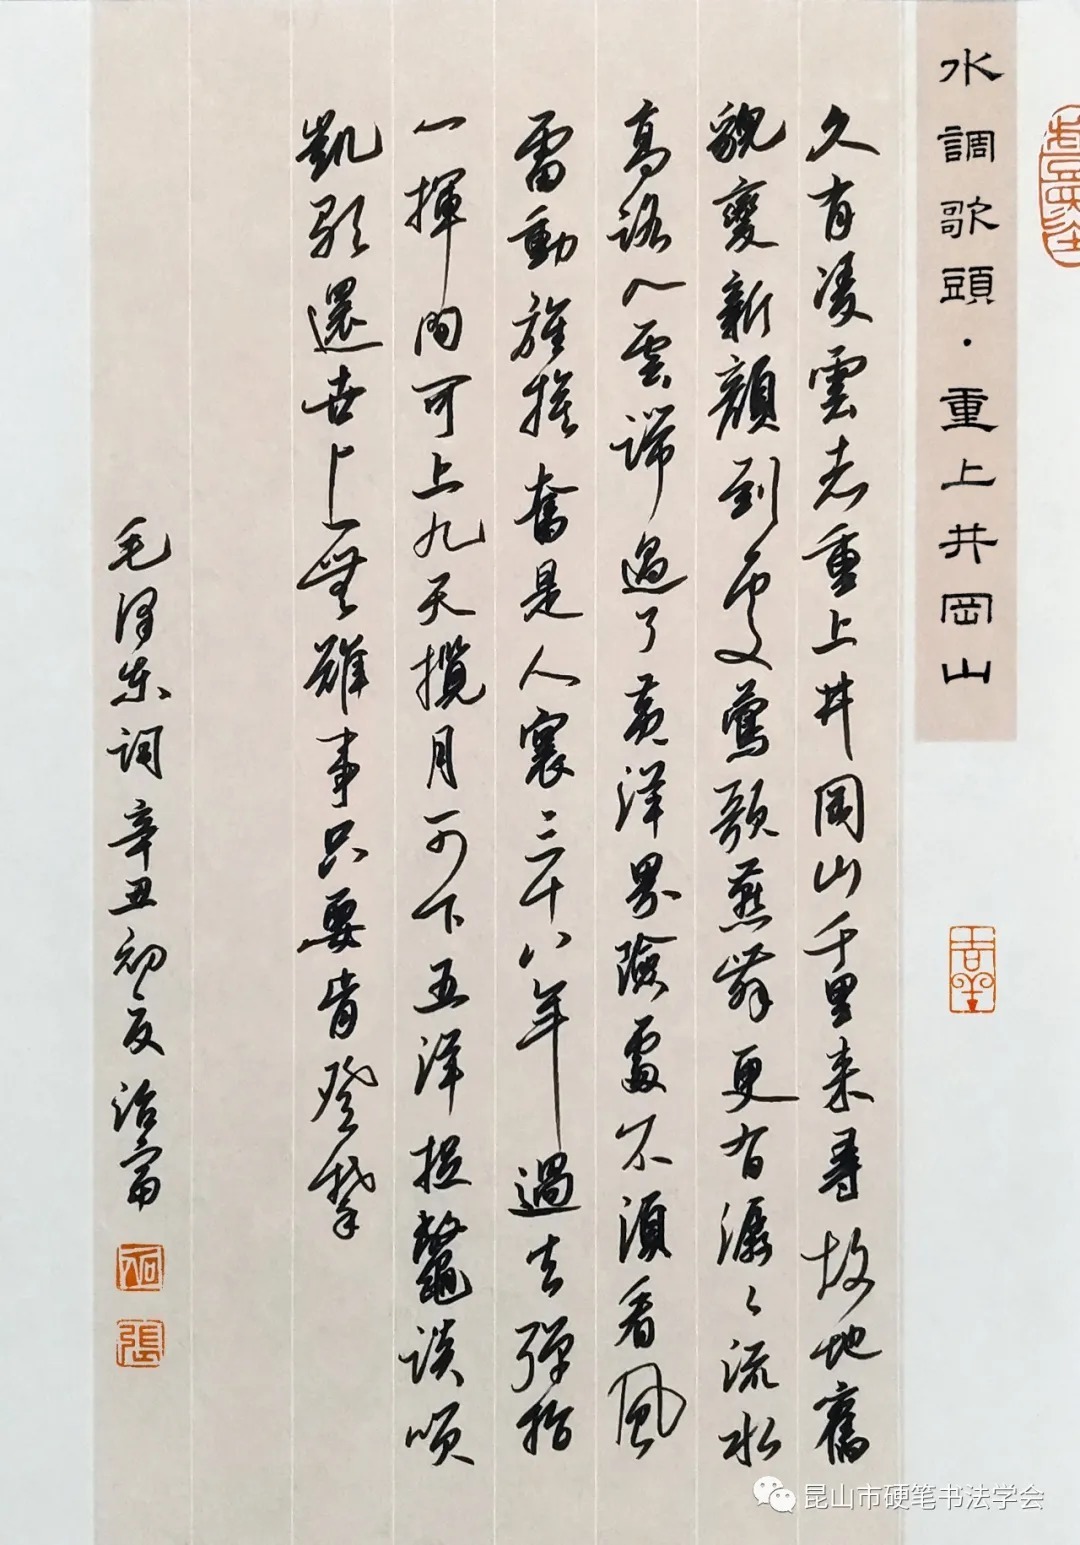 水調歌頭·重上井岡山
久有凌雲志重上井岡山千里来尋故地舊
貌變新顏到處鶯歌燕舞更有潺〻流水
高路入雲端過了黃洋界險處不須看風
雷動旌旗奮是人寰三十八年過去彈指
一揮間可上九天攬月可下五洋捉鱉談笑
凱歌還世上無難事只要肯登攀
毛泽东詞辛丑初夏治富
張
昆山市硬笔书法学会